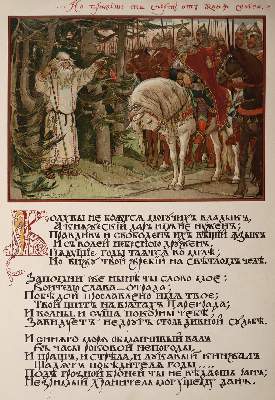 Но примешь ты смерть отъ коня своего.
Волхвы не боятся могучихъ владыкъ,
А княжескій даръ имъ не нуженъ;
Правдивъ и свободенъ ихъ вѣщій языкъ
И съ волей небесною друженъ.
Грядущіе годы таятся во мглѣ;
Но вижу твой жребій на свѣтломъ челѣ.
Запомни же нынѣ ты слово мое:
Воителю слава — отрада;
Побѣдой прославлено имя твое;
Твой щитъ на вратахъ Цареграда;
И волны и суша покорны тебѣ;
Завидуетъ недругъ столь дивной судьбѣ.
И синяго моря обманчивый валъ
Въ часы роковой непогоды,
И пращъ, и стрѣла, и лукавый кинжалъ
Щадятъ побѣдителя годы...
Подъ грозной броней ты не вѣдаешь ранъ;
Незримый хранитель могущему данъ.